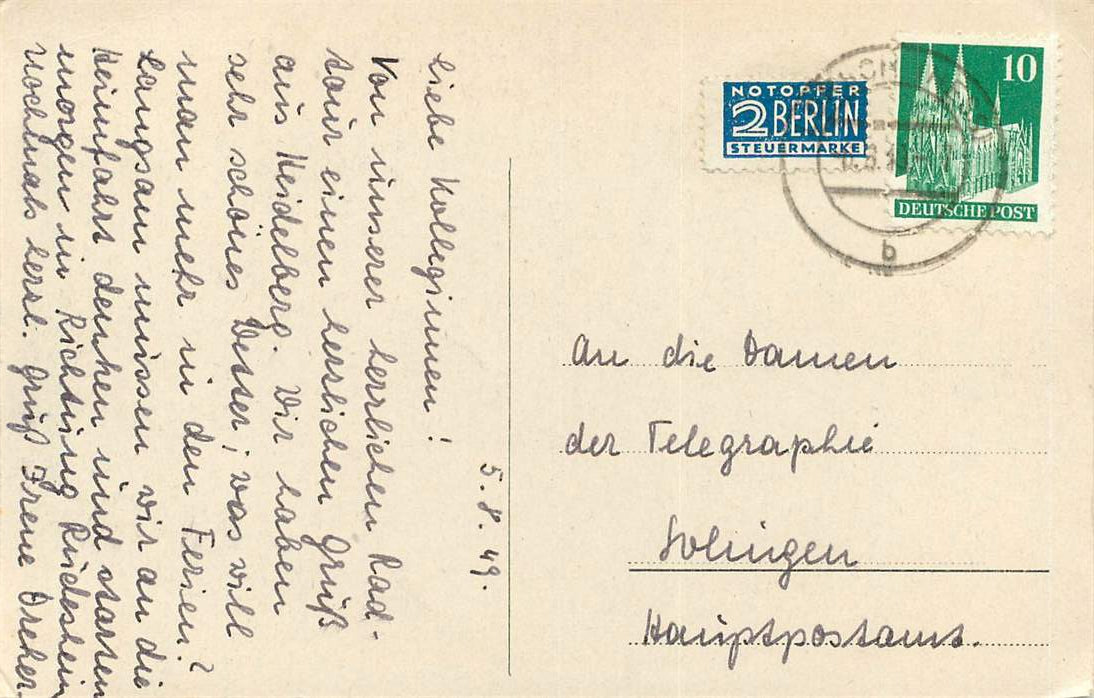 5. 8. 49.
Liebe Kolleginnen!
Von unserer herrlichen Rad-
tour einen herzlichen Gruß
aus Heidelberg. Wir haben
sehr schönes Wetter; was will
man mehr in den Ferien?
Langsam müssen wir an die
Heimfahrt denken und starten
morgen in Richtung Rüdesheim
nochmals herzl. Gruß Irene Dreher
NOTOPFER
2 BERLIN
STEUERMARKE
10
DEUTSCHE POST
b
An die Damen
der Telegraphie
Solingen
Hauptpostamt.